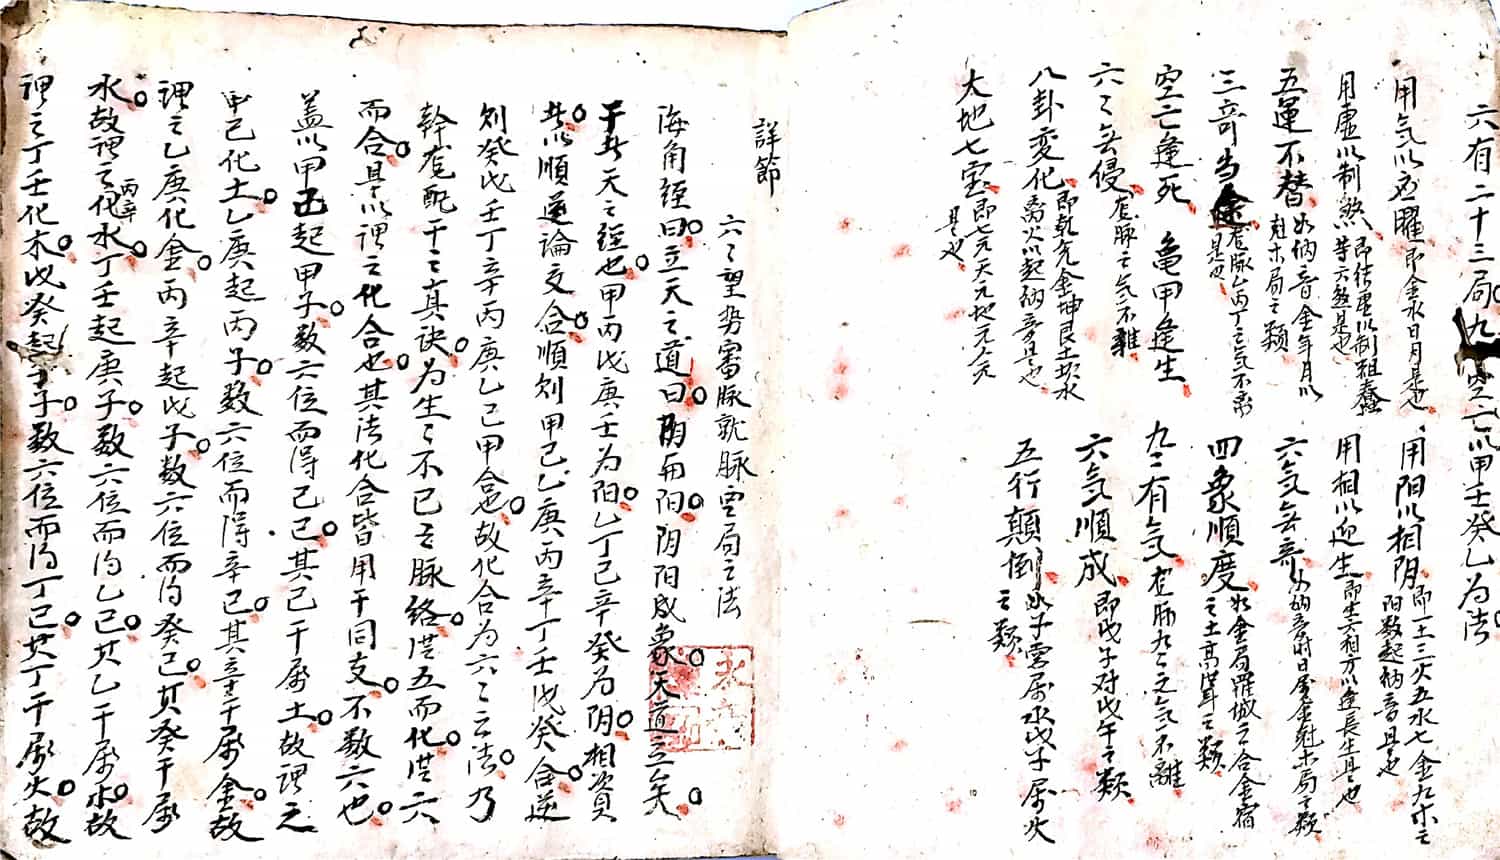 六有二十三局九 空亡以甲壬癸乙为法
用気以応曜即金水日月是也 用阳以相阴即一土三火五水七金九木之阳数起纳音是也
用虚以制煞即佳虚以制粗蠢等六煞是也 用相以迎生即生六相方以逢長生是也
五運不替如纳音金年月以尅木局之類 六気无奇如纳音時日属金尅木局之類
三奇当途在脉以丙丁之気不离是也 四象順度如金局羅城又合金宿之土高聳之類
空亡逢死 亀甲逢生 九二有気在脉九二之気不離
六二无侵在脉之气不雜 六気順成即戊午对戊午之類
八卦変化即乾兌金坤艮土坎水离火以起纳音是也 五行顛倒如子雲属水戊子属火之類
大地七宝即七元天元地元人元是也
詳節
六二望势審脉就脉里局之法
海角経曰立天之道曰阴与阳阴阳成象天道立矣
于此天之経也甲丙戊庚壬为阳乙丁己辛癸为阴相資
此以順逆論交合順则甲己乙庚丙辛丁壬戊癸合逆
则癸戊壬丁辛丙庚乙己甲合邑故化合为六二之法乃
幹在配干之真诀为生二不已之脉络洪五而化洪六
而合是以谓之化合也其法化合皆用干同支不数六也
盖以甲己起甲子数六位而得己巳其己干属土故谓之
甲己化土乙庚起丙子数六位而得辛巳其辛干属金故
谓之乙庚化金丙辛起戊子数六位而得癸巳其癸干属
水故谓之丙辛化水丁壬起庚子数六位而得乙巳其乙干属木故
谓之丁壬化木戊癸起壬子数六位而得丁巳其丁干属火故